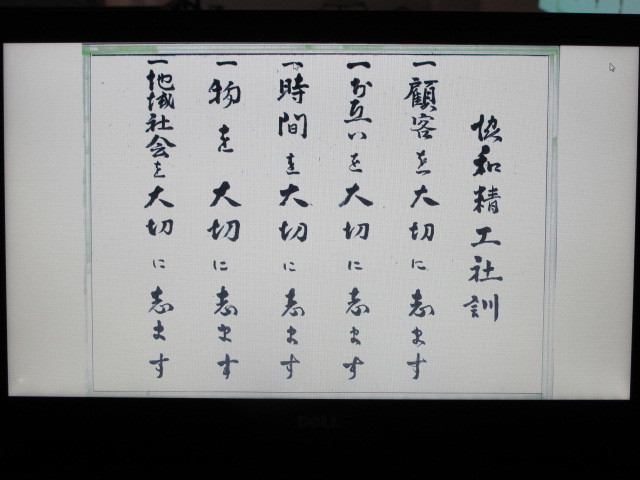 協和精工社訓
一顧客を大切に志ます
一お互いを大切に志ます
一時間を大切に志ます
一物を大切に志ます
一地域社会を大切に志ます
DELL